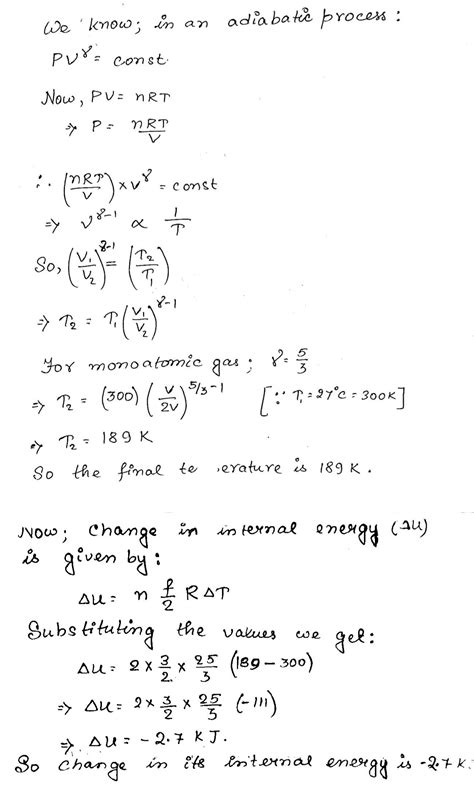 We know; in an adiabatic process:
PV^γ = const.
Now, PV = nRT
⇒ P = nRT/V
∴ (nRT/V) × V^γ = const
⇒ V^γ-1 ∝ 1/T
So, (V₁/V₂)^γ-1 = (T₂/T₁)
⇒ T₂ = T₁ (V₁/V₂)^γ-1
For monoatomic gas; γ = 5/3
⇒ T₂ = (300) (V/2V)^5/3-1 [∵ T₁ = 27°C = 300K]
⇒ T₂ = 189 K
So the final te erature is 189 K.
Now; change in internal energy (ΔU)
is given by:
ΔU = n f/2 R ΔT
Substituting the values we get:
ΔU = 2 × 3/2 × 25/3 (189 - 300)
⇒ ΔU = 2 × 3/2 × 25/3 (-111)
⇒ ΔU = -2.7 KJ.
So change in its internal energy is -2.7 K